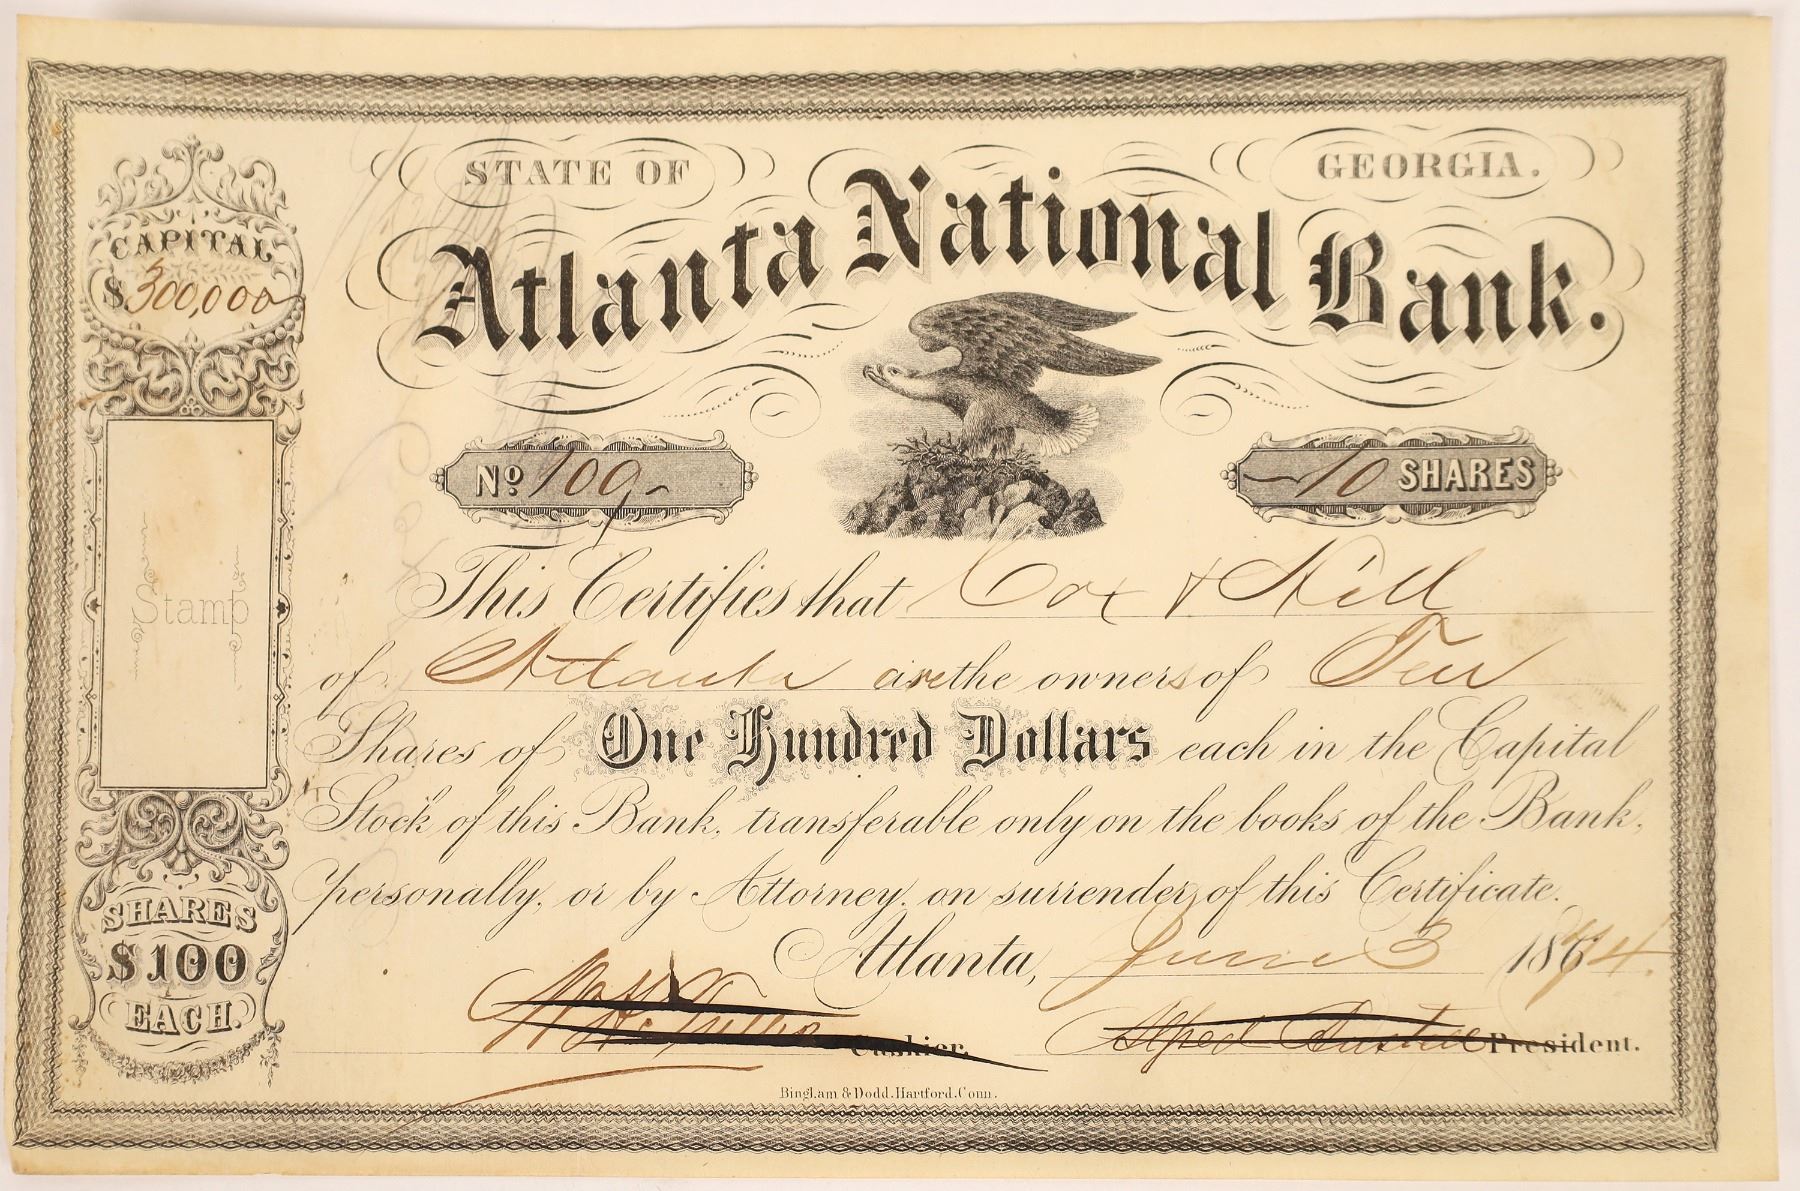 STATE OF GEORGIA.
Atlanta National Bank.
CAPITAL
$300,000
No 109
10 SHARES
Stamp
This Certifies that Cox & Hill
of Atlanta are the owners of Ten
Shares of One Hundred Dollars each in the Capital
Stock of this Bank, transferable only on the books of the Bank,
personally, or by Attorney, on surrender of this Certificate.
Atlanta, June 3 1874.
SHARES
$100
EACH.
Cashier.
Alfred Austell President.
Bingham & Dodd. Hartford. Conn.